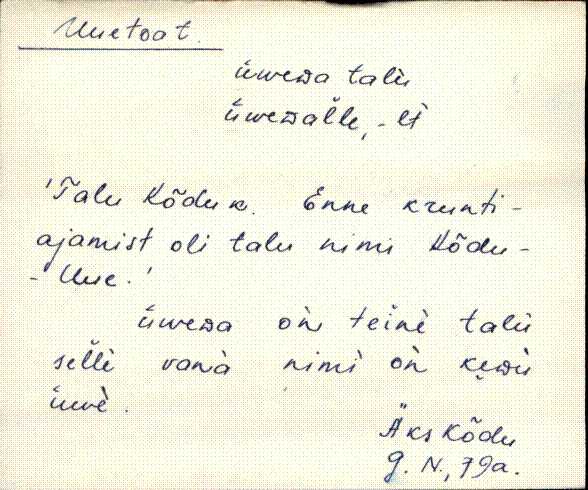 Uuetoat.
üwewa talù
üwewalle, -lt
'Talu Kõduk. Enne krunti-
ajamist oli talu nimi Kõdu-
- Uue.'
üwewa òn teinè talù
selle vanà nimì òn kẹwù
üwè.
Äks Kõdu
J. N., 79a.